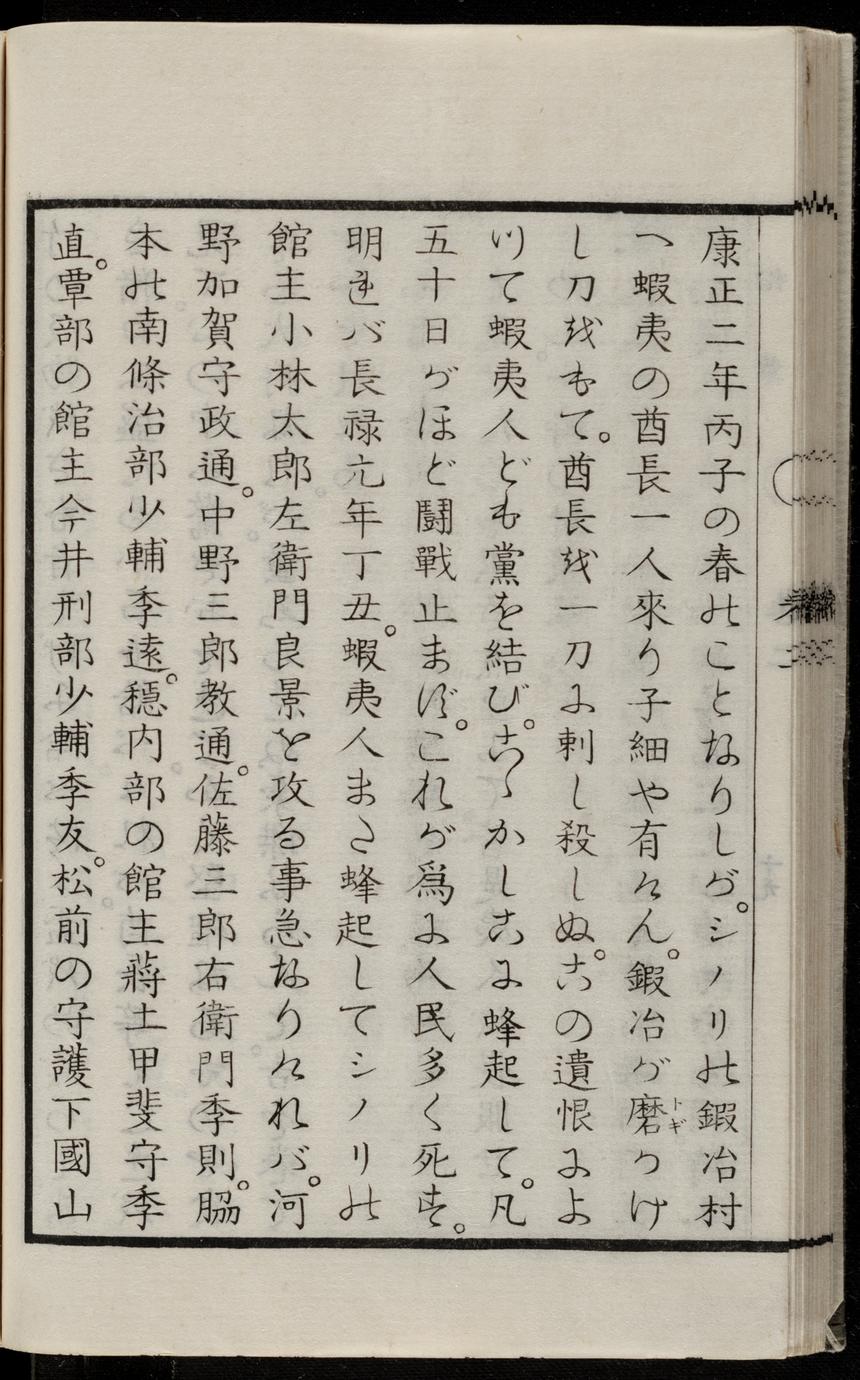 康正二年丙子の春のことなりしが。シノリの鍜冶村
へ蝦夷の酋長一人來り子細や有けん。鍜冶が磨トギかけ
し刀をもて。酋長を一刀に刺し殺しぬ。この遺恨によ
りて蝦夷人ども黨を結び。こゝかしこに蜂起して。凡
五十日がほど闘戰止まず。これが爲に人民多く死す。
明れバ長禄元年丁丑。蝦夷人また蜂起してシノリの
館主小林太郎左衛門良景を攻る事急なりけれバ。河
野加賀守政通。中野三郎教通。佐藤三郎右衛門季則。脇
本の南條治部少輔季遠。穏内部の館主蔣土甲斐守季
直。覃部の館主今井刑部少輔季友。松前の守護下國山